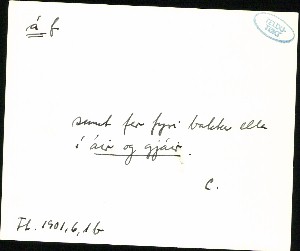 á f
sumt fer fyri bakka ella
í áir og gjáir.
C.
Ft. 1901,6,1b